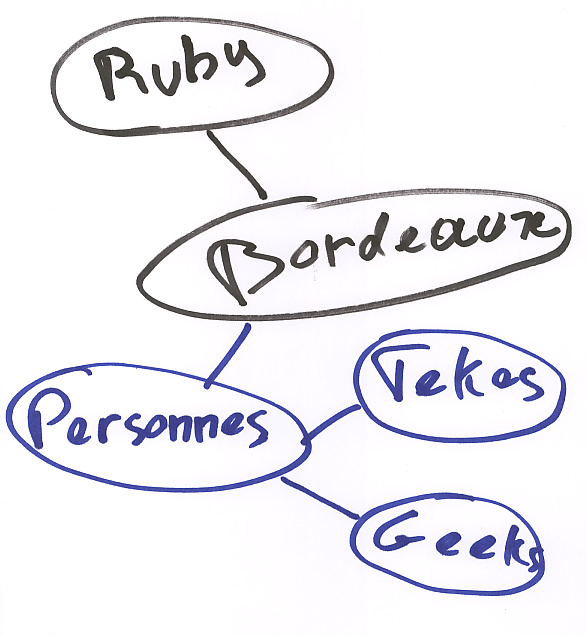 Ruby
Bordeaux
Personnes
Tekes
Geeks